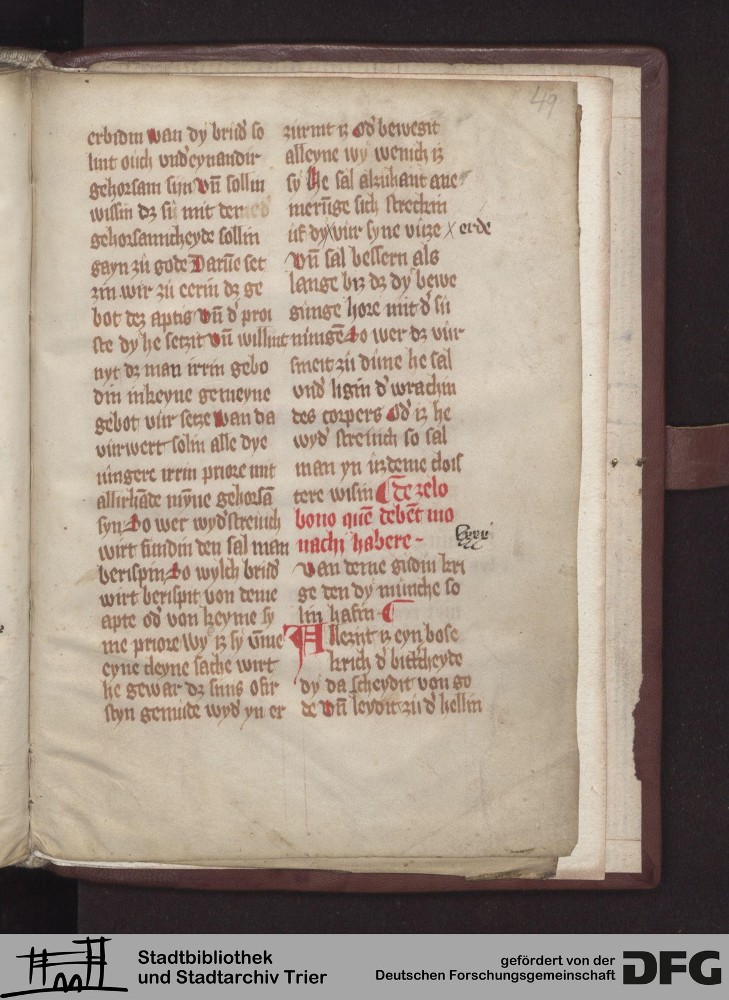 49
erbidin wan dy brud̕ so
lint ouch vnd̕eynandir
gehorsam sijn Vn̄ sollin
wissin dz sij mit deme
gehorsamicheyde sollin
gayn zü gode Darūe set
zin wir zü eerin dz ge
bot dez aptis Vn̄ d̕ proi
ste dy he setzit Vn̄ willint
nyt dz man irrin gebo
din inkeyne gemeyne
gebot vür setze Wan da
vürwert solin alle dye
iungere irrin priore mit
allirhāde mȳne gehorsā
syn So wer wyd̕streuich
wirt fundin den sal man
berispin So wylch brud̕
wirt berispit von deme
apte od̕ von keyme sy
me priore wy iz sy v̄me
eyne cleyne sache wirt
he gewar dz sinis ofir
styn gemüde wyd̕ yn er
zürnit iz Od̕ bewegit
alleyne wy wenich iz
sy He sal alzühant ane
merūge sich streckin
uf dy x vür syne vüze x erde
Vn̄ sal bessern als
lange biz dz dy bewe
gunge hore mit d̕ sii
ningē So wer dz vür
smeit zü düne he sal
vnd̕ ligin d̕ wrachin
des corpers Od̕ iz he
wyd̕ streuich so sal
man yn uzdeme clois
tere wisin De zelo
bono quē debēt mo
nachi habere
lxxii
Van deme gudin kri
ge den dy münche so
lin hafin
Alleznt iz eyn bose
krich d̕ bittircheyde
dy da scheydit von go
de Vn̄ leydit zü d̕ hellin
Stadtbibliothek
und Stadtarchiv Trier
gefördert von der
Deutschen Forschungsgemeinschaft
DFG